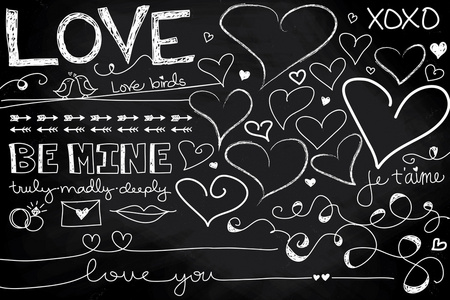 LOVE
XOXO
Love birds
BE MINE
je t'aime
truly-madly-deeply
love you